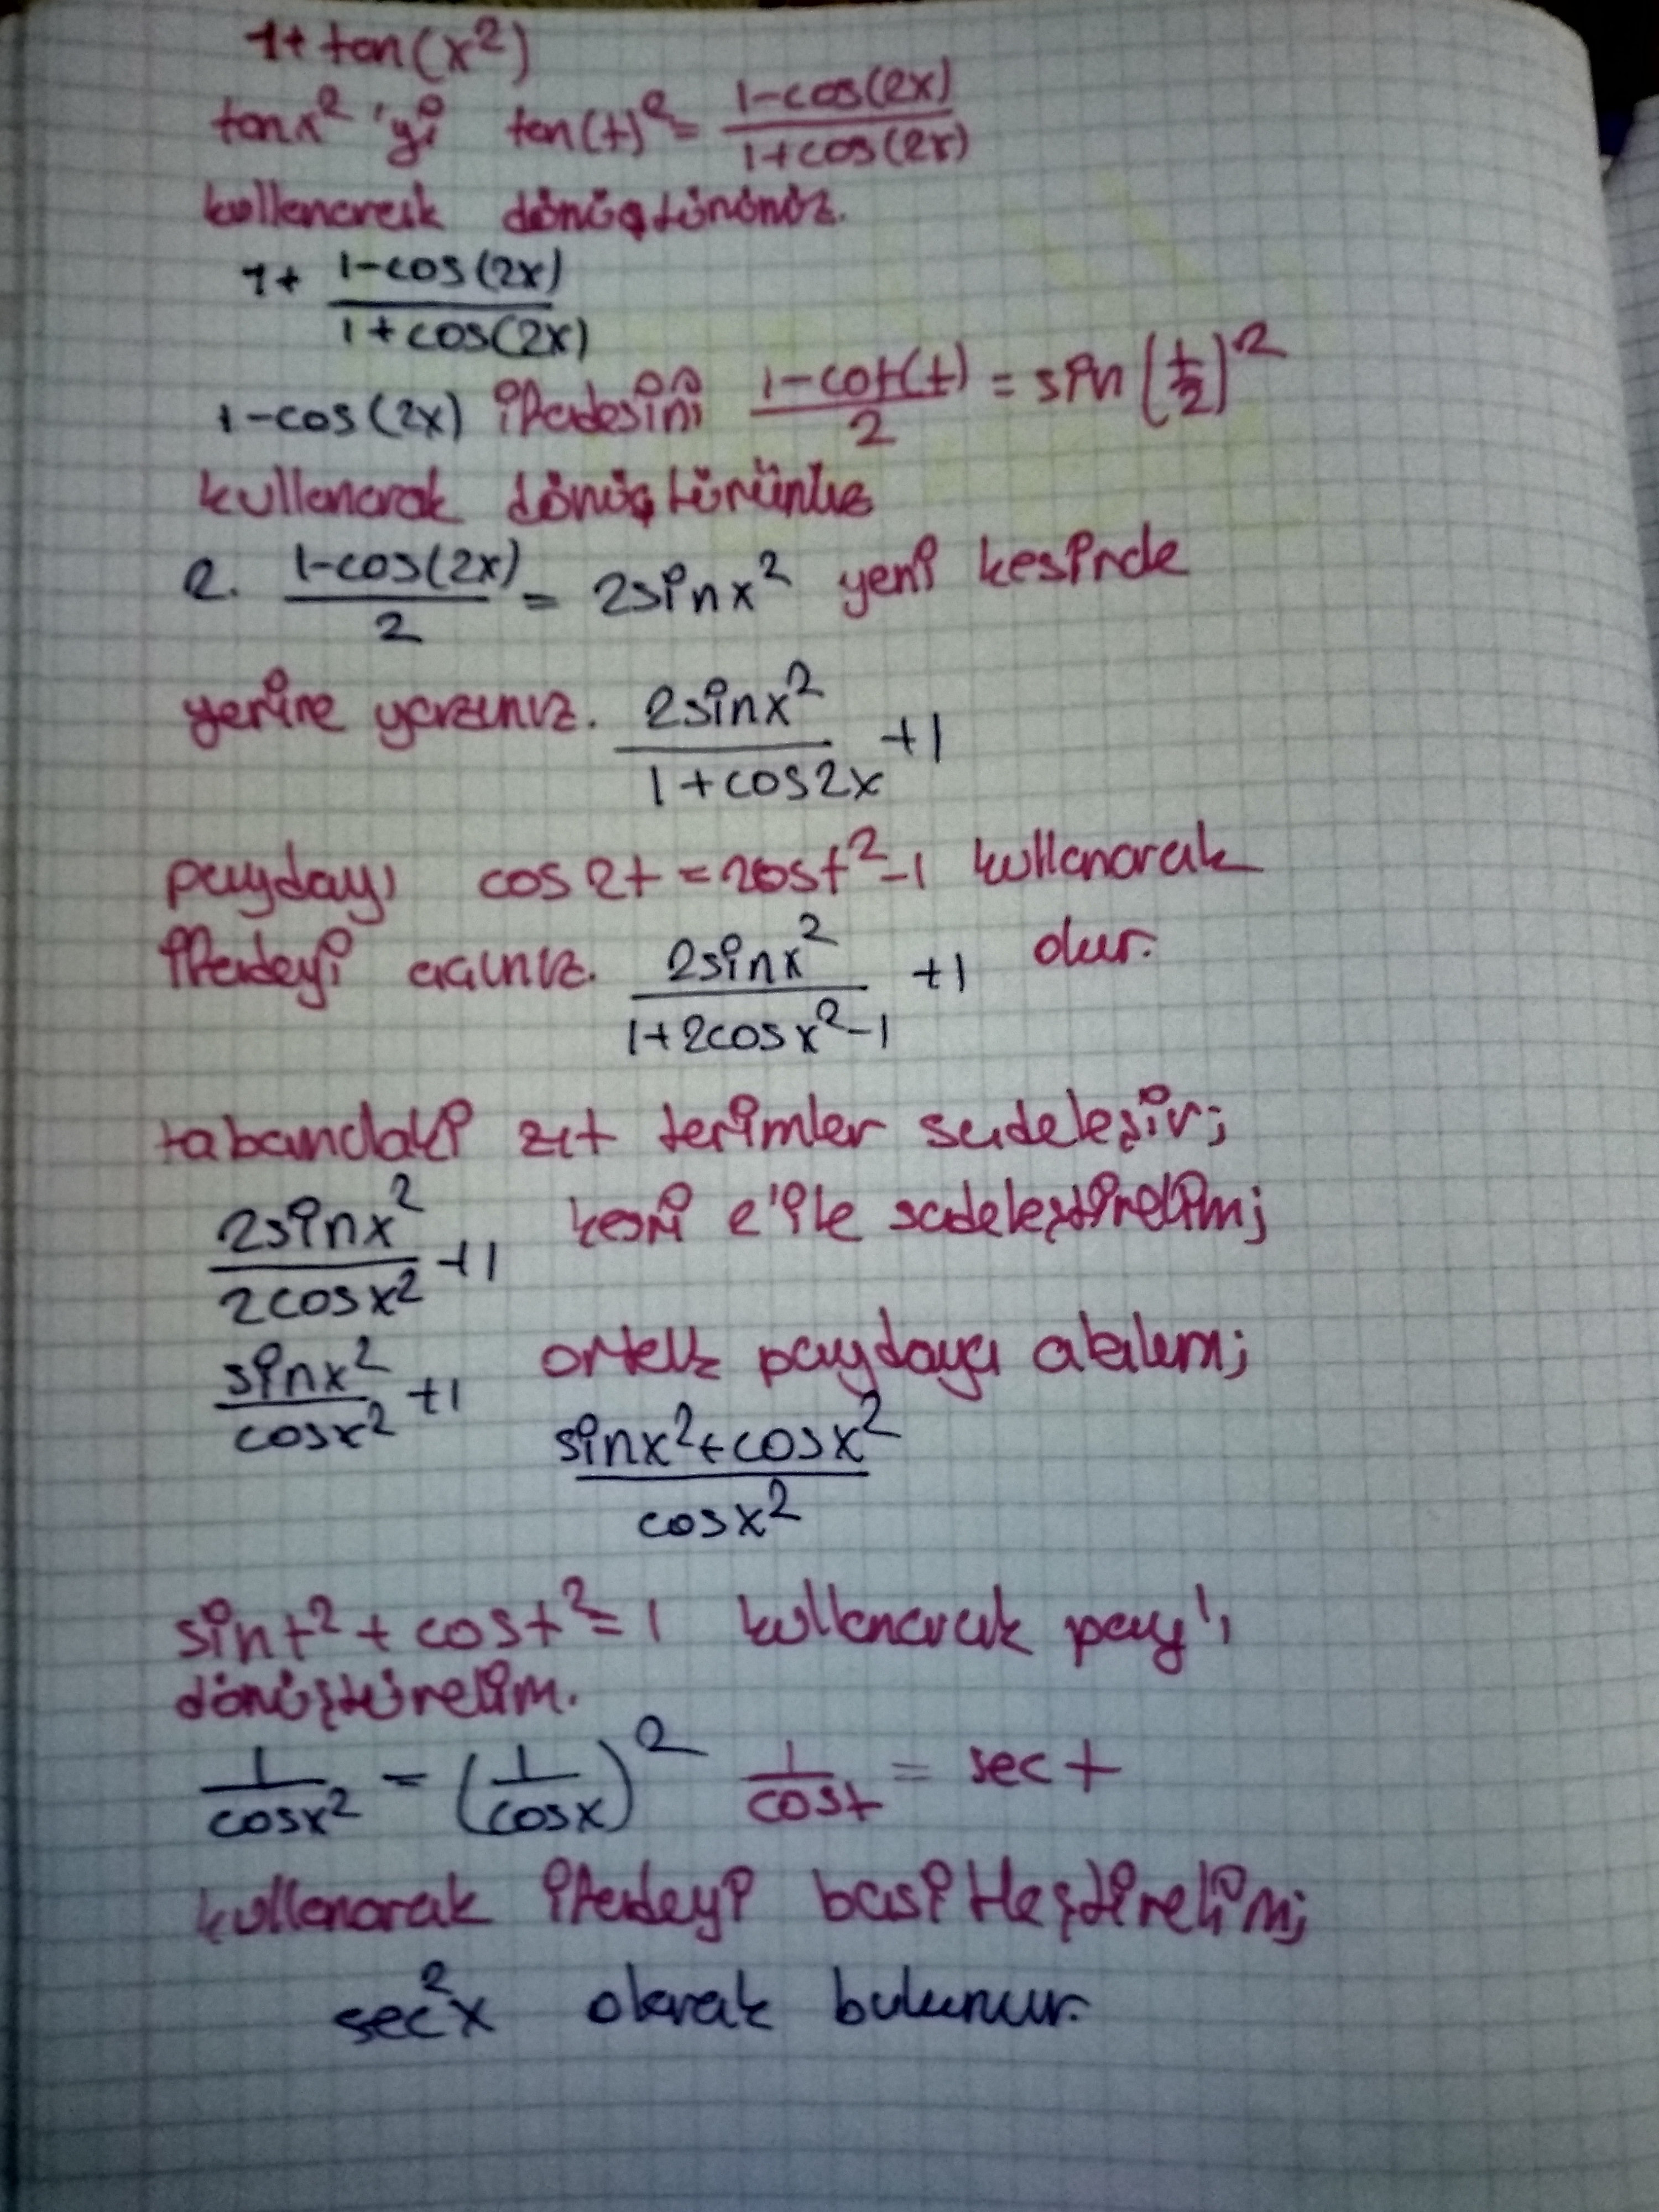 1+ tan(x²)
tanx² 'yi tan(t)² = (1-cos(2x))/(1+cos(2x))
kullanarak dönüştürünüz.
1+ (1-cos(2x))/(1+cos(2x))
1-cos(2x) ifadesini (1-cot(t))/2 = sin(t/2)²
kullanarak dönüştürünüz
2. (1-cos(2x))/2 = 2sinx² yeni kesirde
yerine yazınız. 2sinx²/(1+cos2x) +1
paydayı cos2t = 2cost²-1 kullanarak
ifadeyi açınız. 2sinx²/(1+2cosx²-1) +1 olur.
tabandaki zıt terimler sadeleşir;
2sinx²/2cosx² +1 kesri 2'ile sadeleştirelim;
sinx²/cosx² +1 ortak paydaya alalım;
(sinx²+cosx²)/cosx²
sint² + cost² = 1 kullanarak pay'ı
dönüştürelim.
1/cosx² = (1/cosx)² 1/cost = sec t
kullanarak ifadeyi basitleştirelim;
sec²x olarak bulunur.